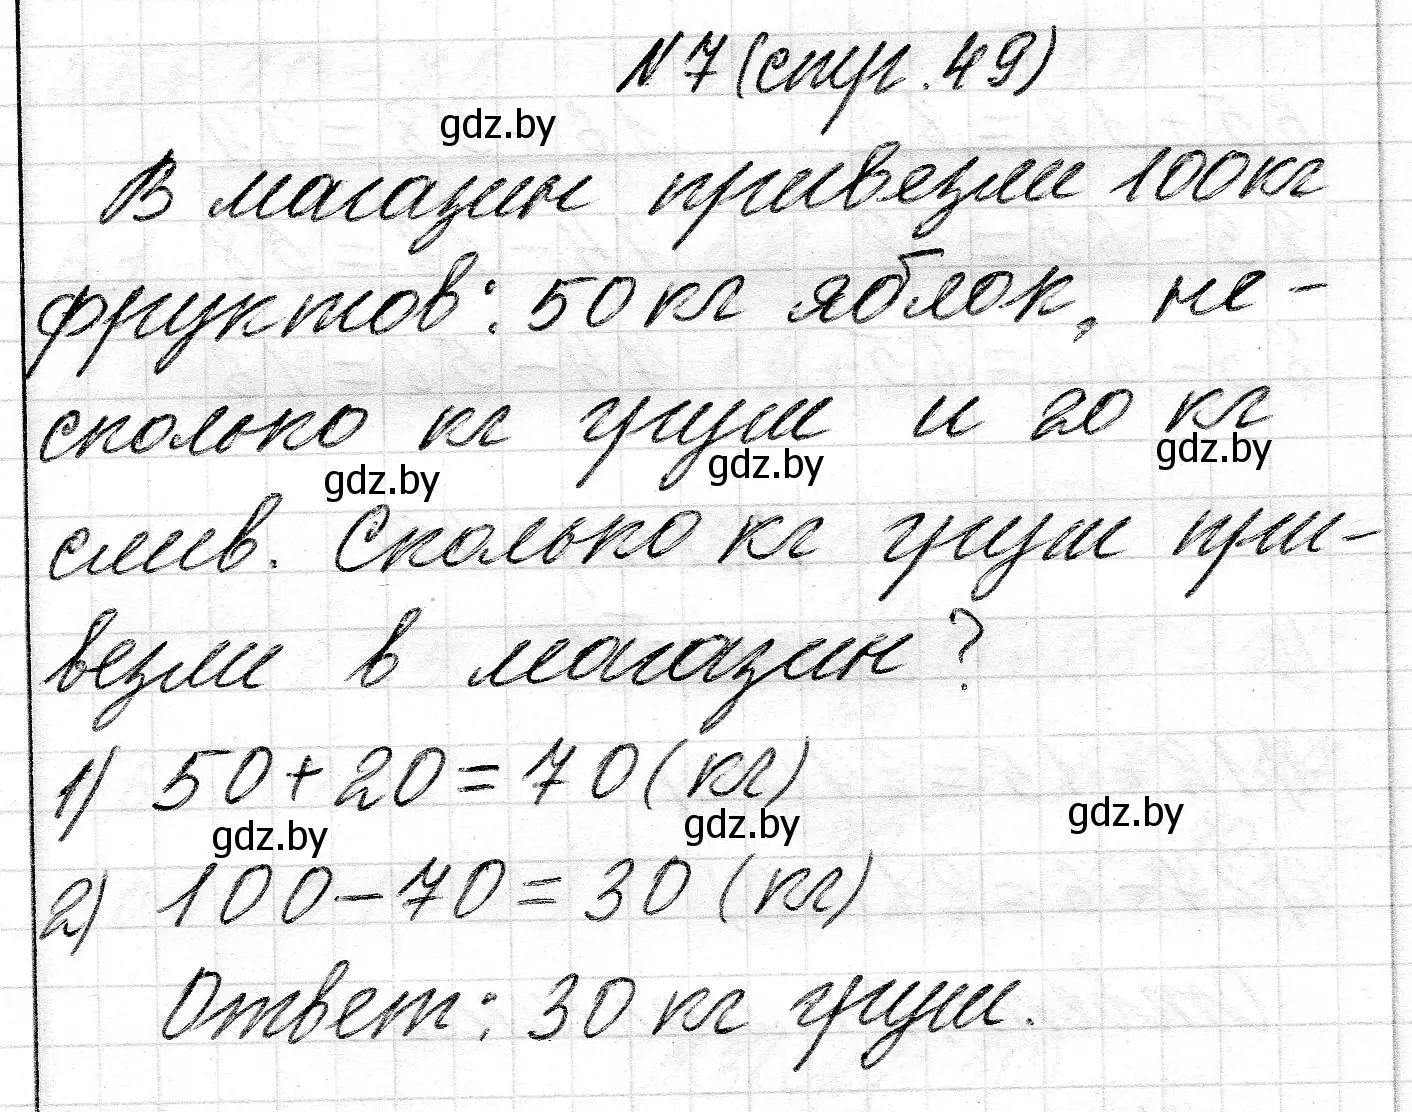 N 7 (стр. 49)
gdz.by
В магазин привезли 100 кг
фруктов: 50 кг яблок, не-
сколько кг груш и 20 кг
gdz.by gdz.by gdz.by
слив. Сколько кг груш при-
везли в магазин?
1) 50 + 20 = 70 (кг)
gdz.by gdz.by gdz.by
2) 100 - 70 = 30 (кг)
Ответ: 30 кг груш.